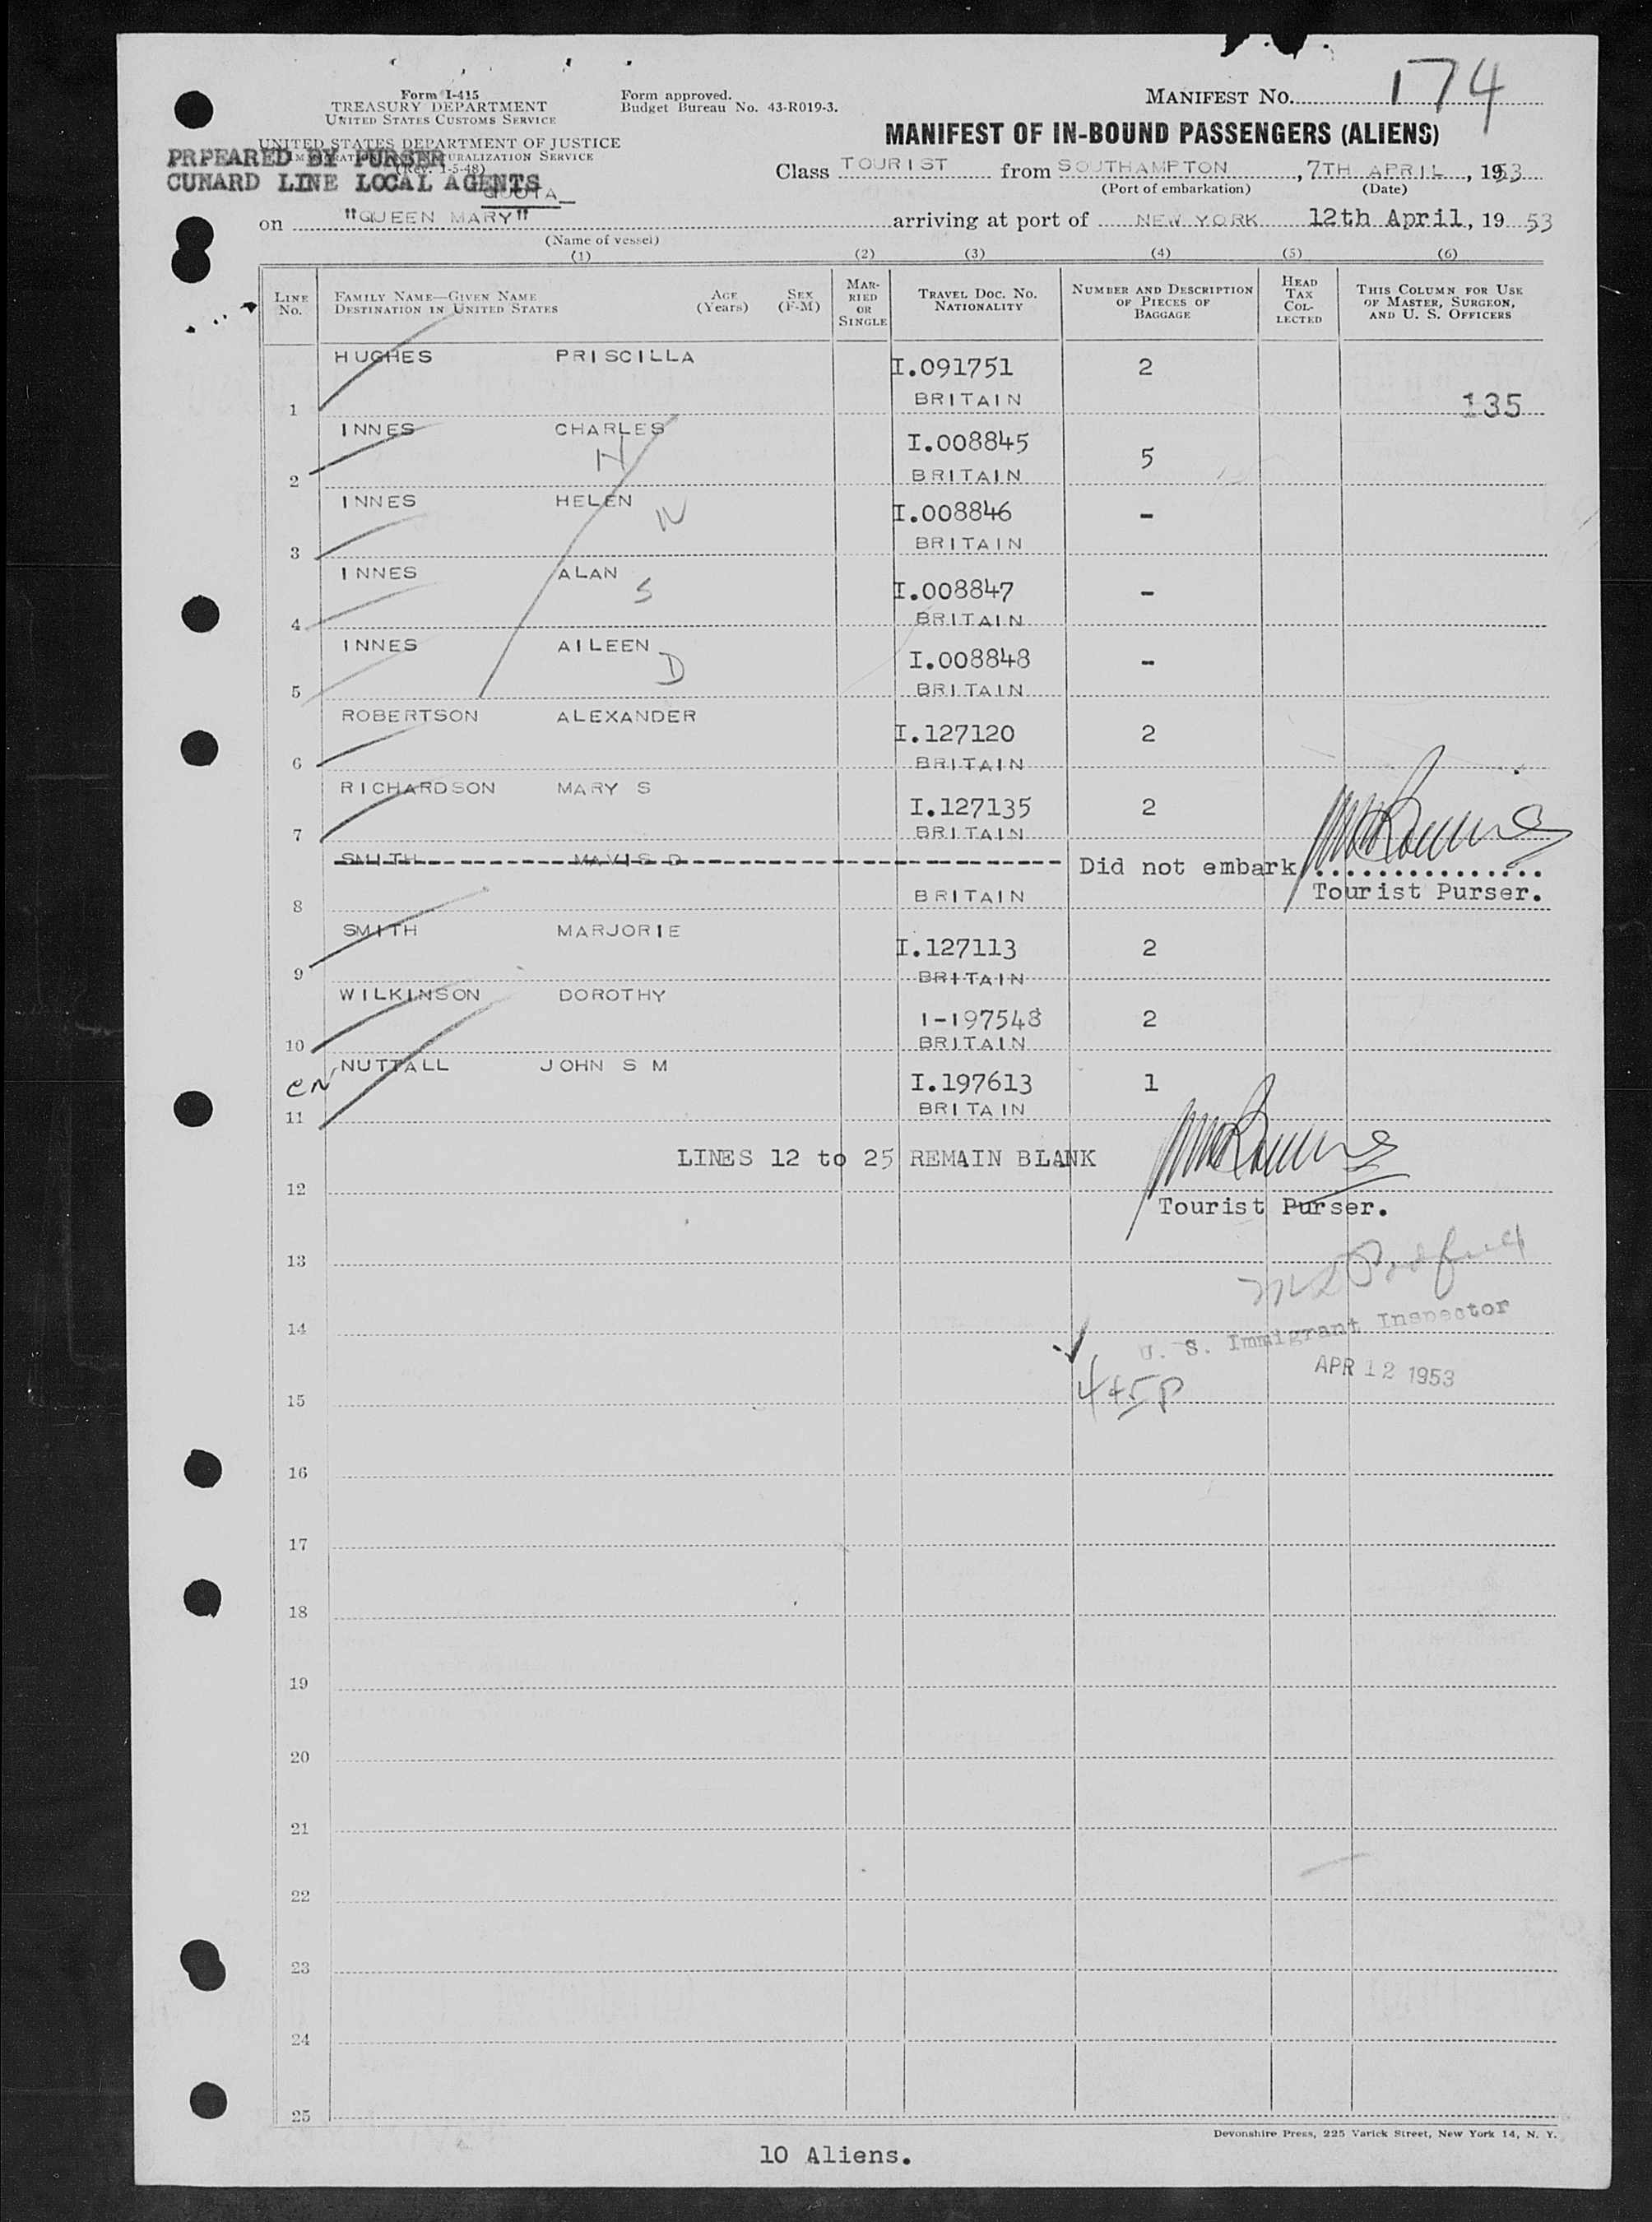 Form I-415
TREASURY DEPARTMENT
UNITED STATES CUSTOMS SERVICE
Form approved.
Budget Bureau No. 43-R019-3.
MANIFEST NO. 174
UNITED STATES DEPARTMENT OF JUSTICE
IMMIGRATION NATURALIZATION SERVICE
(Rev. 1-5-48)
PRPEARED BY PURSER
CUNARD LINE LOCAL AGENTS
QUOTA
MANIFEST OF IN-BOUND PASSENGERS (ALIENS)
Class TOURIST from SOUTHAMPTON, 7TH APRIL, 1953
(Port of embarkation) (Date)
on "QUEEN MARY" arriving at port of NEW YORK 12th April, 1953
(Name of vessel)
(1) (2) (3) (4) (5) (6)
LINE No. FAMILY NAME—GIVEN NAME DESTINATION IN UNITED STATES AGE (Years) SEX (F-M) MARRIED OR SINGLE TRAVEL DOC. NO. NATIONALITY NUMBER AND DESCRIPTION OF PIECES OF BAGGAGE HEAD TAX COLLECTED THIS COLUMN FOR USE OF MASTER, SURGEON, AND U. S. OFFICERS
HUGHES PRISCILLA I.091751 2
1 BRITAIN 135
INNES CHARLES I.008845 5
H
2 BRITAIN
INNES HELEN I.008846 -
W
3 BRITAIN
INNES ALAN I.008847 -
S
4 BRITAIN
INNES AILEEN I.008848 -
D
5 BRITAIN
ROBERTSON ALEXANDER I.127120 2
6 BRITAIN
RICHARDSON MARY S I.127135 2
7 BRITAIN
SMITH MAVIS D Did not embark
8 BRITAIN Tourist Purser.
SMITH MARJORIE I.127113 2
9 BRITAIN
WILKINSON DOROTHY I-197548 2
10 BRITAIN
NUTTALL JOHN S M I.197613 1
11 BRITAIN
LINES 12 to 25 REMAIN BLANK
12
Tourist Purser.
13
14
U. S. Immigrant Inspector
APR 12 1953
4+5P
15
16
17
18
19
20
21
22
23
24
25
Devonshire Press, 225 Varick Street, New York 14, N. Y.
10 Aliens.